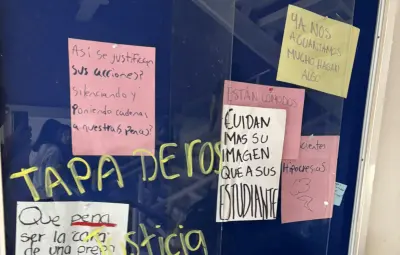 Así se justifican
sus acciones?
Silenciando y
Poniendo cadenas
a nuestras penas?
YA NOS
AGUANTAMOS
MUCHO HAGAN
ALGO
ESTÁN CÓMODOS
CUIDAN
MAS SU
IMAGEN
QUE A SUS
ESTUDIANTE
HIPOCRESAS
TAPADEROS
Que pena
ser la cara
de una prepa
Justicia